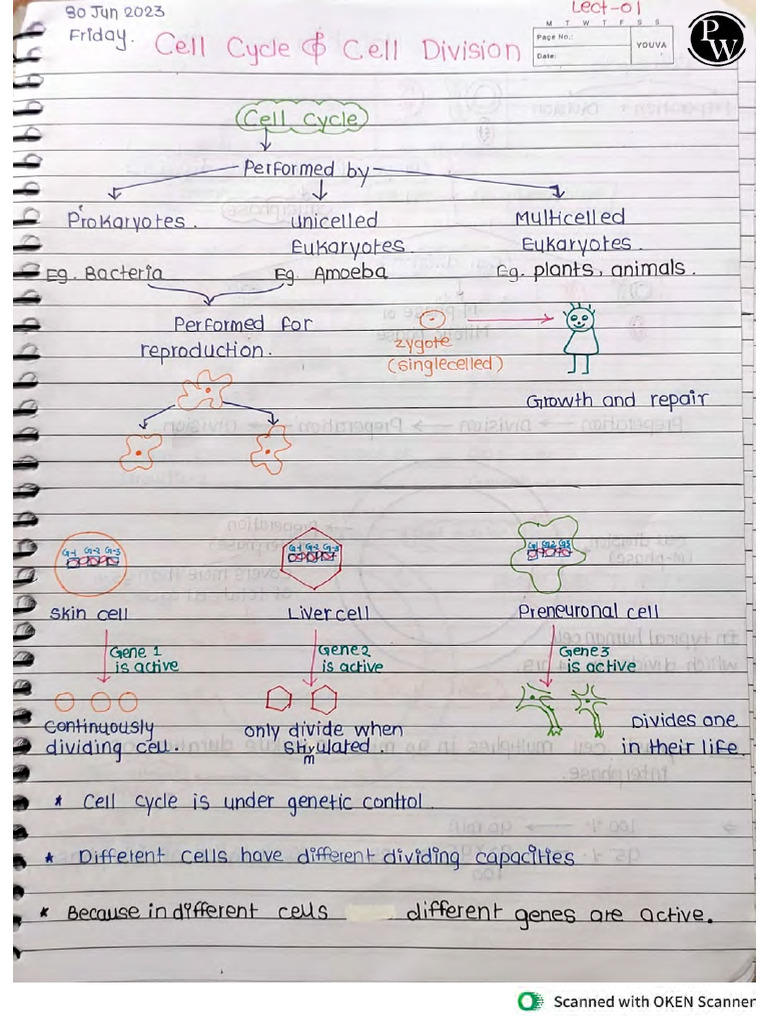 30 Jun 2023
Friday.
Lect-01
M T W T F S S
Page No.:
Date:
YOUVA
PW
Cell Cycle & Cell Division
Cell Cycle
Performed by
Prokaryotes.
Unicelled
Eukaryotes.
Multicelled
Eukaryotes.
Eg. Bacteria
Eg. Amoeba
Eg. plants, animals.
Performed for
reproduction.
zygote
(singlecelled)
Growth and repair
G-1 G-2 G-3
G-1 G-2 G-3
G1 G2 G3
Skin cell
Liver cell
Preneuronal cell
Gene 1
is active
Gene2
is active
Gene3
is active
Continuously
dividing cell.
only divide when
stimulated.
m
Divides one
in their life.
* Cell cycle is under genetic control.
* Different cells have different dividing capacities
* Because in different cells different genes are active.
Scanned with OKEN Scanner